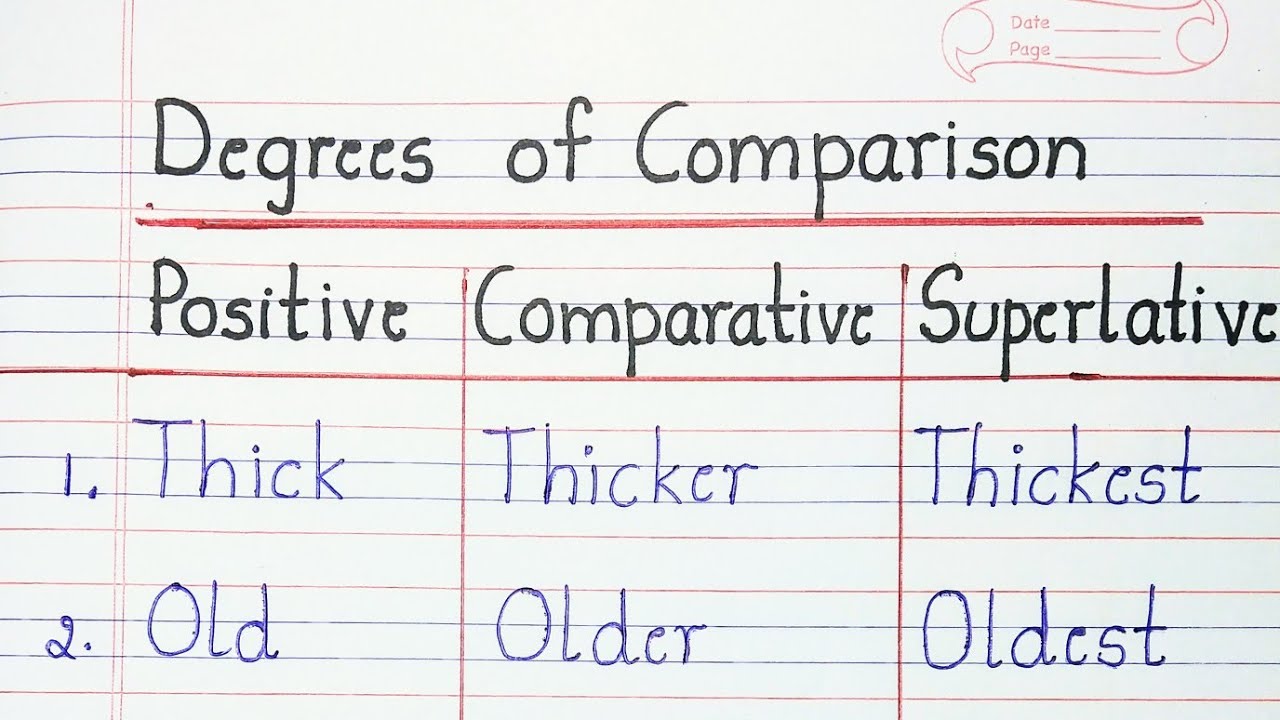 Date
Page
Degrees of Comparison
Positive Comparative Superlative
1. Thick Thicker Thickest
2. Old Older Oldest